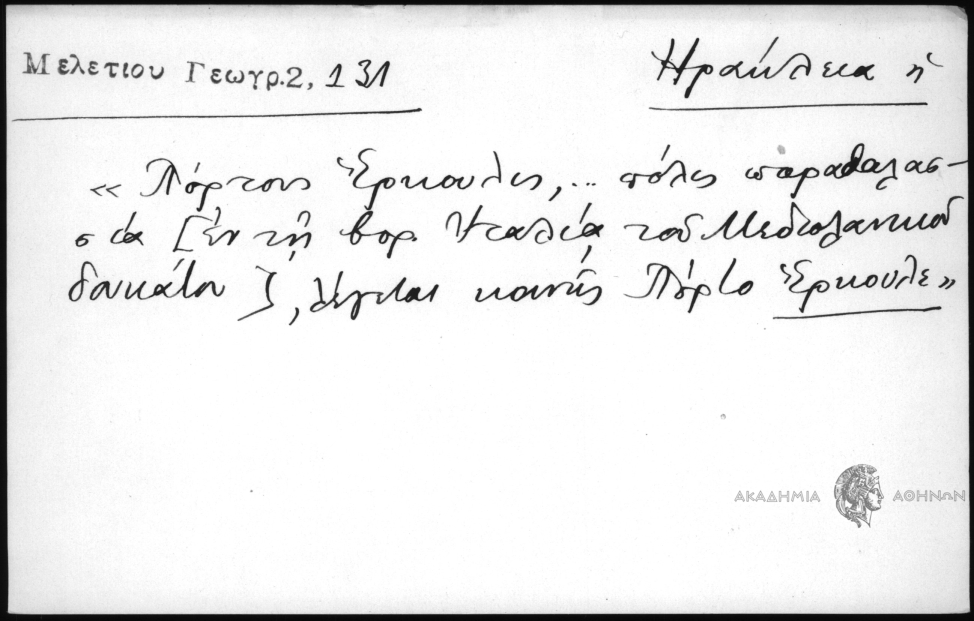 Μελετίου Γεωγρ.2, 131
Ηράκλεια ἡ
« Πόρτους Ἕρκουλις,... πόλις παραθαλασ-
σία [ἐν τῇ βορ. Ἰταλίᾳ τοῦ Μεδιολανικοῦ
δουκάτου], λέγεται κοινῶς Πόρτο Ἕρκουλε»
ΑΚΑΔΗΜΙΑ ΑΘΗΝΩΝ